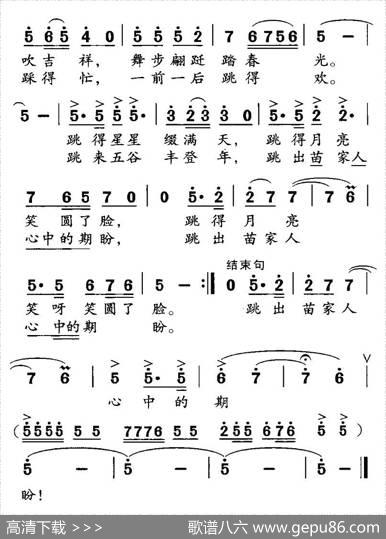 5 6 5 4 0 | 5 5 5 5 2 | 7 6 7 5 6 | 5 -
吹吉祥， 舞步翩跹 踏春 光。
踩得忙， 一前一后 跳得 欢。
5 - | 5· 5 5 5· | 3 2 3 3 0 | 5· 5 2 2·
跳得星星 缀满天， 跳得月亮
跳来五谷 丰登年， 跳出苗家人
7 6 5 7 0 | 0 5· 2 | 2 7 7 | 7 6
笑圆了脸， 跳得月亮
心中的期盼， 跳出苗家人
结束句
5· 5 6 7 6 | 5 - :‖ 0 5· 2 | 2 7 7
笑呀笑圆了脸。 跳出苗家人
心中的期 盼。
7 6 | 5 5· 5 | 6 7 | 7· 6 ∨
心中的期
( 5 5 5 5 5 5 | 7 7 7 6 5 5 | 2 5 5 6 7 6 | 5 5 )
5 - | 5 - | 5 - | 5 - ‖
盼！
高清下载 >>>
歌谱八六 www.gepu86.com